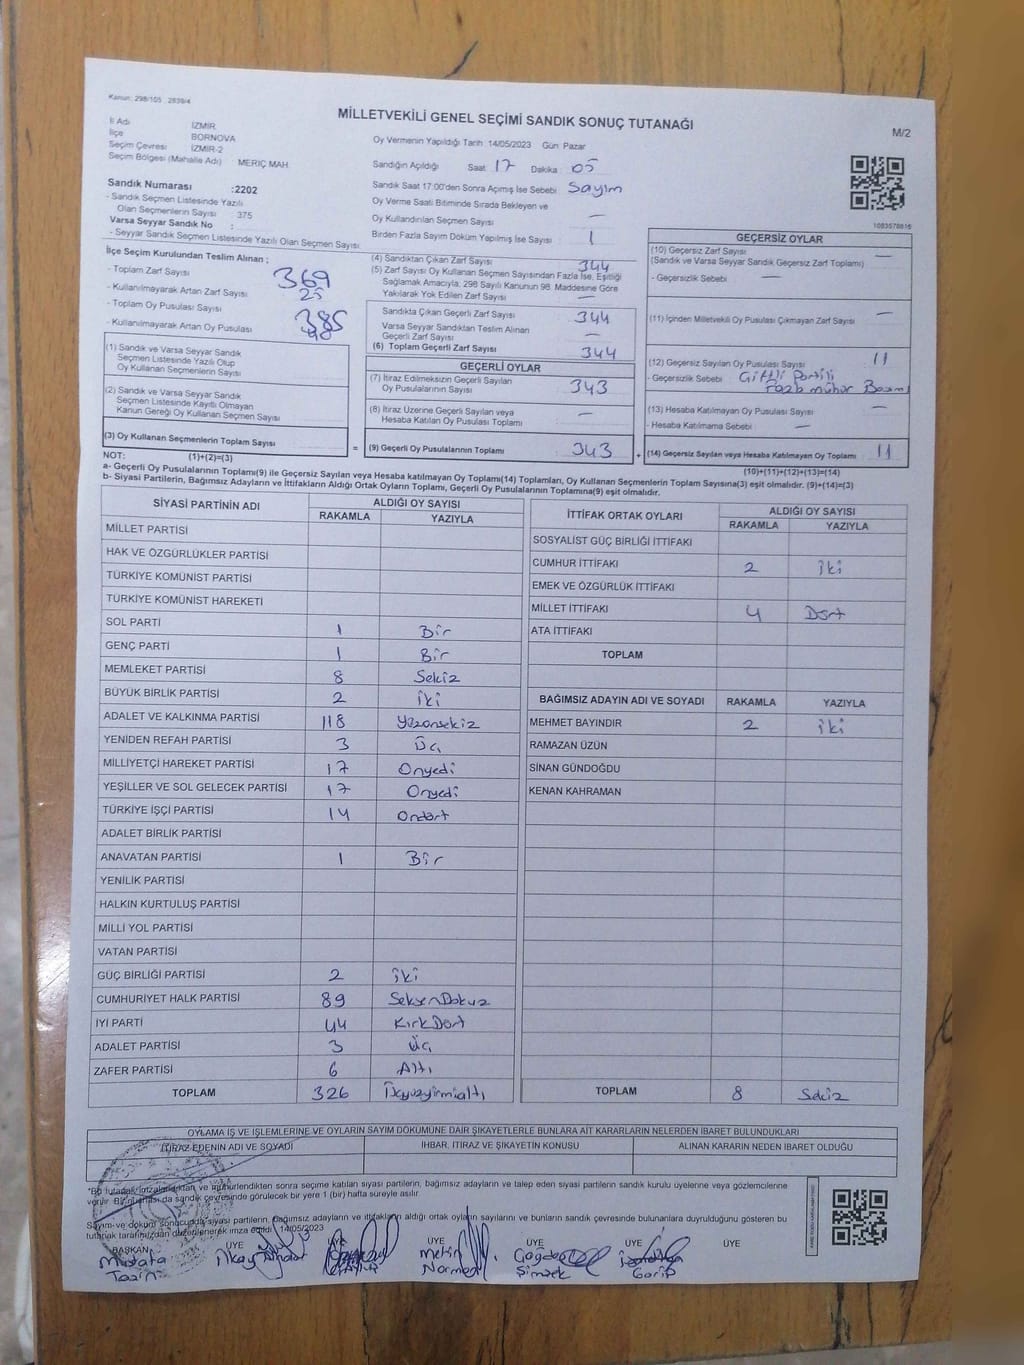 Kanun: 298/105 2839/4
MİLLETVEKİLİ GENEL SEÇİMİ SANDIK SONUÇ TUTANAĞI
M/2
İl Adı İZMİR
İlçe BORNOVA
Seçim Çevresi İZMİR-2
Seçim Bölgesi (Mahalle Adı) MERİÇ MAH.
Sandık Numarası :2202
- Sandık Seçmen Listesinde Yazılı
Olan Seçmenlerin Sayısı : 375
Varsa Seyyar Sandık No :
- Seyyar Sandık Seçmen Listesinde Yazılı Olan Seçmen Sayısı:
Oy Vermenin Yapıldığı Tarih :14/05/2023 Gün Pazar
Sandığın Açıldığı Saat 17 Dakika : 05
Sandık Saat 17:00'den Sonra Açımış İse Sebebi Sayım
Oy Verme Saati Bitiminde Sırada Bekleyen ve
Oy Kullandırılan Seçmen Sayısı —
Birden Fazla Sayım Döküm Yapılmış İse Sayısı 1
1083578616
İlçe Seçim Kurulundan Teslim Alınan ;
- Toplam Zarf Sayısı 369
- Kullanılmayarak Artan Zarf Sayısı : 25
- Toplam Oy Pusulası Sayısı : 385
- Kullanılmayarak Artan Oy Pusulası
(1) Sandık ve Varsa Seyyar Sandık
Seçmen Listesinde Yazılı Olup
Oy Kullanan Seçmenlerin Sayısı
(2) Sandık ve Varsa Seyyar Sandık
Seçmen Listesinde Kayıtlı Olmayan
Kanun Gereği Oy Kullanan Seçmen Sayısı
(3) Oy Kullanan Seçmenlerin Toplam Sayısı =
(4) Sandıktan Çıkan Zarf Sayısı 344
(5) Zarf Sayısı Oy Kullanan Seçmen Sayısından Fazla İse, Eşitliği
Sağlamak Amacıyla, 298 Sayılı Kanunun 98. Maddesine Göre
Yakılarak Yok Edilen Zarf Sayısı —
Sandıkta Çıkan Geçerli Zarf Sayısı 344
Varsa Seyyar Sandıktan Teslim Alınan
Geçerli Zarf Sayısı —
(6) Toplam Geçerli Zarf Sayısı 344
GEÇERLİ OYLAR
(7) İtiraz Edilmeksizin Geçerli Sayılan
Oy Pusulasının Sayısı 343
(8) İtiraz Üzerine Geçerli Sayılan veya
Hesaba Katılan Oy Pusulası Toplamı —
(9) Geçerli Oy Pusulalarının Toplamı 343 +
GEÇERSİZ OYLAR
(10) Geçersiz Zarf Sayısı —
(Sandık ve Varsa Seyyar Sandık Geçersiz Zarf Toplamı)
- Geçersizlik Sebebi : —
(11) İçinden Milletvekili Oy Pusulası Çıkmayan Zarf Sayısı —
(12) Geçersiz Sayılan Oy Pusulası Sayısı 11
- Geçersizlik Sebebi : Çiftli Partili
Fazla mühür
(13) Hesaba Katılmayan Oy Pusulası Sayısı —
- Hesaba Katılmama Sebebi —
(14) Geçersiz Sayılan veya Hesaba Katılmayan Oy Toplamı 11
NOT: (1)+(2)=(3)
(10)+(11)+(12)+(13)=(14)
a- Geçerli Oy Pusulalarının Toplamı(9) ile Geçersiz Sayılan veya Hesaba katılmayan Oy Toplamı(14) Toplamları, Oy Kullanan Seçmenlerin Toplam Sayısına(3) eşit olmalıdır. (9)+(14)=(3)
b- Siyasi Partilerin, Bağımsız Adayların ve İttifakların Aldığı Ortak Oyların Toplamı, Geçerli Oy Pusulalarının Toplamına(9) eşit olmalıdır.
SİYASİ PARTİNİN ADI ALDIĞI OY SAYISI
RAKAMLA YAZIYLA
MİLLET PARTİSİ
HAK VE ÖZGÜRLÜKLER PARTİSİ
TÜRKİYE KOMÜNİST PARTİSİ
TÜRKİYE KOMÜNİST HAREKETİ
SOL PARTİ 1 Bir
GENÇ PARTİ 1 Bir
MEMLEKET PARTİSİ 8 Sekiz
BÜYÜK BİRLİK PARTİSİ 2 iki
ADALET VE KALKINMA PARTİSİ 118 Yüzonsekiz
YENİDEN REFAH PARTİSİ 3 Üç
MİLLİYETÇİ HAREKET PARTİSİ 17 Onyedi
YEŞİLLER VE SOL GELECEK PARTİSİ 17 Onyedi
TÜRKİYE İŞÇİ PARTİSİ 14 Ondört
ADALET BİRLİK PARTİSİ
ANAVATAN PARTİSİ 1 Bir
YENİLİK PARTİSİ
HALKIN KURTULUŞ PARTİSİ
MİLLİ YOL PARTİSİ
VATAN PARTİSİ
GÜÇ BİRLİĞİ PARTİSİ 2 iki
CUMHURİYET HALK PARTİSİ 89 SeksenDokuz
İYİ PARTİ 44 KırkDört
ADALET PARTİSİ 3 Üç
ZAFER PARTİSİ 6 Altı
TOPLAM 326 Üçyüzyirmialtı
İTTİFAK ORTAK OYLARI ALDIĞI OY SAYISI
RAKAMLA YAZIYLA
SOSYALİST GÜÇ BİRLİĞİ İTTİFAKI
CUMHUR İTTİFAKI 2 iki
EMEK VE ÖZGÜRLÜK İTTİFAKI
MİLLET İTTİFAKI 4 Dört
ATA İTTİFAKI
TOPLAM
BAĞIMSIZ ADAYIN ADI VE SOYADI RAKAMLA YAZIYLA
MEHMET BAYINDIR 2 iki
RAMAZAN ÜZÜN
SİNAN GÜNDOĞDU
KENAN KAHRAMAN
TOPLAM 8 Sekiz
OYLAMA İŞ VE İŞLEMLERİNE VE OYLARIN SAYIM DÖKÜMÜNE DAİR ŞİKAYETLERLE BUNLARA AİT KARARLARIN NELERDEN İBARET BULUNDUKLARI
İTİRAZ EDENİN ADI VE SOYADI İHBAR, İTİRAZ VE ŞİKAYETİN KONUSU ALINAN KARARIN NEDEN İBARET OLDUĞU
*Bu tutanak imzalandıktan ve mühürlendikten sonra seçime katılan siyasi partilerin, bağımsız adayların ve talep eden siyasi partilerin sandık kurulu üyelerine veya gözlemcilerine
verilir. Bir nüshası da sandık çevresinde görülecek bir yere 1 (bir) hafta süreyle asılır.
Sayım ve döküm sonucunda siyasi partilerin, bağımsız adayların ve ittifakların aldığı ortak oyların sayılarını ve bunların sandık çevresinde bulunanlara duyrulduğunu gösteren bu
tutanak tarafımızdan düzenlenerek imza edildi. 14/05/2023
BAŞKAN ÜYE ÜYE ÜYE ÜYE ÜYE ÜYE
Mustafa ilkay Metin
Normen Şimşek Garip